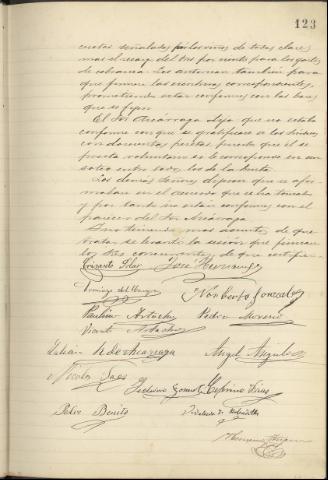 123
cuotas señaladas por los vinos de todas clases
mas el recargo del tres por ciento para los gastos
de cobranza. Les autorizan tambien para
que firmen las escrituras correspondientes,
prometiendo estar conformes con las bases
que se fijen.
El Sr. Azcárraga dijo que no estaba
conforme con que se gratificase a los Señores
con doscientas pesetas puesto que el se
presta voluntario si le corresponde en un
sorteo entre todos los de la Junta.
Los demás Señores dijeron que se afir-
maban en el acuerdo que se ha tomado
y por tanto no están conformes con el
parecer del Sr. Azcárraga.
Y no teniendo mas asuntos de que
tratar se levantó la sesión que firman
los Sres concurrentes, de que certifico.
José
Norberto Gonzalez
Paulino Artacho Pedro Moreno
Vicente Artacho
Julian de Azcarraga Angel Angulo
Nicolas Saez
Pedro Benito